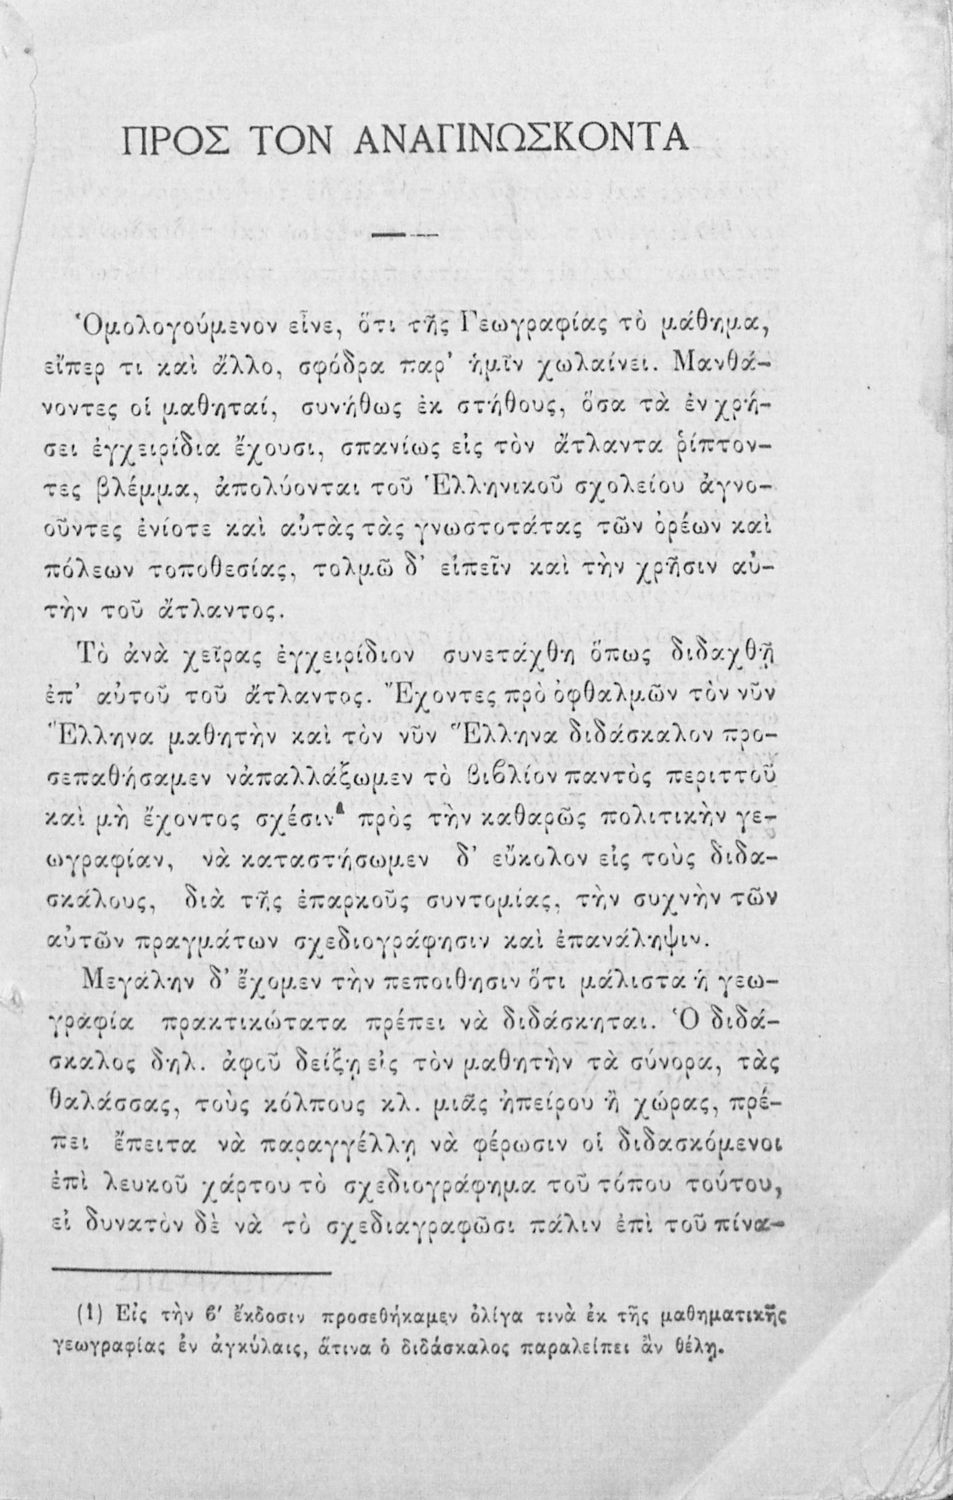 ΠΡΟΣ ΤΟΝ ΑΝΑΓΙΝΩΣΚΟΝΤΑ
Ὁμολογούμενον εἶνε, ὅτι τῆς Γεωγραφίας τὸ μάθημα,
εἴπερ τι καὶ ἄλλο, σφόδρα παρ’ ἡμῖν χωλαίνει. Μανθά-
νοντες οἱ μαθηταί, συνήθως ἐκ στήθους, ὅσα τὰ ἐν χρή-
σει ἐγχειρίδια ἔχουσι, σπανίως εἰς τὸν ἄτλαντα ῥίπτον-
τες βλέμμα, ἀπολύονται τοῦ Ἑλληνικοῦ σχολείου ἀγνο-
οῦντες ἐνίοτε καὶ αὐτὰς τὰς γνωστοτάτας τῶν ὀρέων καὶ
πόλεων τοποθεσίας, τολμῶ δ’ εἰπεῖν καὶ τὴν χρῆσιν αὐ-
τὴν τοῦ ἄτλαντος.
Τὸ ἀνὰ χεῖρας ἐγχειρίδιον συνετάχθη ὅπως διδαχθῇ
ἐπ’ αὐτοῦ τοῦ ἄτλαντος. Ἔχοντες πρὸ ὀφθαλμῶν τὸν νῦν
Ἕλληνα μαθητὴν καὶ τὸν νῦν Ἕλληνα διδάσκαλον προ-
σεπαθήσαμεν νἀπαλλάξωμεν τὸ βιβλίον παντὸς περιττοῦ
καὶ μὴ ἔχοντος σχέσιν¹ πρὸς τὴν καθαρῶς πολιτικὴν γε-
ωγραφίαν, νὰ καταστήσωμεν δ’ εὔκολον εἰς τοὺς διδα-
σκάλους, διὰ τῆς ἐπαρκοῦς συντομίας, τὴν συχνὴν τῶν
αὐτῶν πραγμάτων σχεδιογράφησιν καὶ ἐπανάληψιν.
Μεγάλην δ’ ἔχομεν τὴν πεποίθησιν ὅτι μάλιστα ἡ γεω-
γραφία πρακτικώτατα πρέπει νὰ διδάσκηται. Ὁ διδά-
σκαλος δηλ. ἀφοῦ δείξῃ εἰς τὸν μαθητὴν τὰ σύνορα, τὰς
θαλάσσας, τοὺς κόλπους κλ. μιᾶς ἠπείρου ἢ χώρας, πρέ-
πει ἔπειτα νὰ παραγγέλλῃ νὰ φέρωσιν οἱ διδασκόμενοι
ἐπὶ λευκοῦ χάρτου τὸ σχεδιογράφημα τοῦ τόπου τούτου,
εἰ δυνατὸν δὲ νὰ τὸ σχεδιαγραφῶσι πάλιν ἐπὶ τοῦ πίνα-
(1) Εἰς τὴν β′ ἔκδοσιν προσεθήκαμεν ὀλίγα τινὰ ἐκ τῆς μαθηματικῆς
γεωγραφίας ἐν ἀγκύλαις, ἅτινα ὁ διδάσκαλος παραλείπει ἂν θέλῃ.